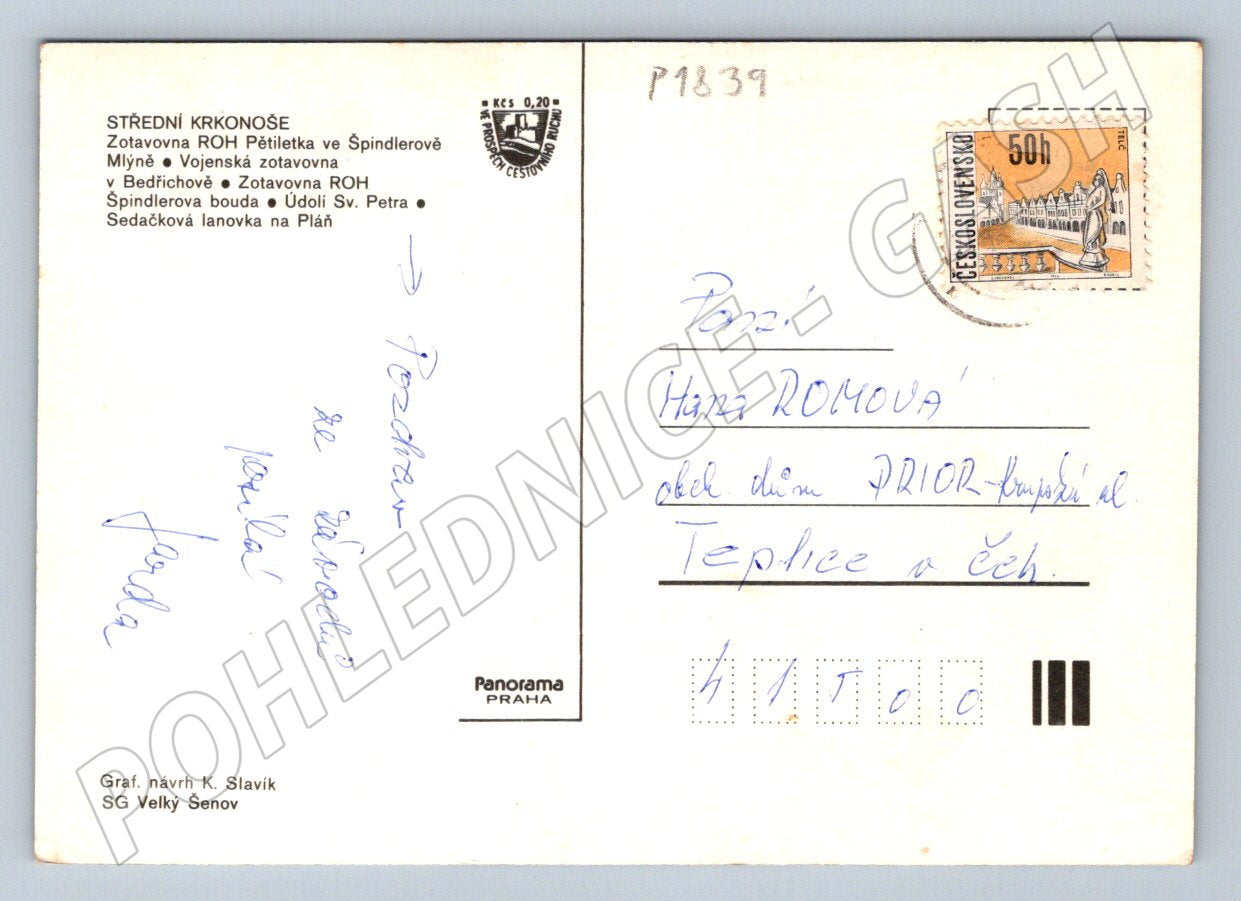 P1839
STŘEDNÍ KRKONOŠE
Zotavovna ROH Pětiletka ve Špindlerově
Mlýně ● Vojenská zotavovna
v Bedřichově ● Zotavovna ROH
Špindlerova bouda ● Údolí Sv. Petra ●
Sedačková lanovka na Pláň
Kčs 0,20
VE PROSPĚCH CESTOVNÍHO RUCHU
→ Pozdrav
ze závodu
posílá
Jarda
Panorama
PRAHA
Graf. návrh K. Slavík
SG Velký Šenov
ČESKOSLOVENSKO
50h
TELČ
Hana ROMOVÁ
obch. dům PRIOR - Krupská ul.
Teplice v Čech.
41500
POHLEDNICE - GASH